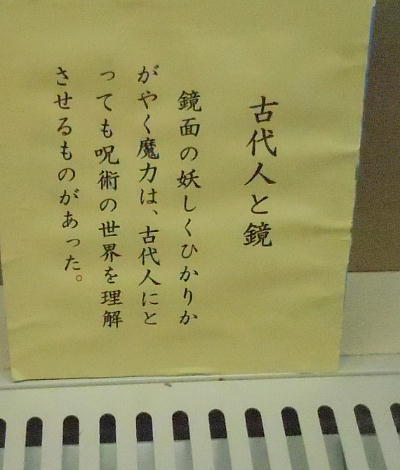 古代人と鏡
鏡面の妖しくひかりか
がやく魔力は、古代人にと
っても呪術の世界を理解
させるものがあった。